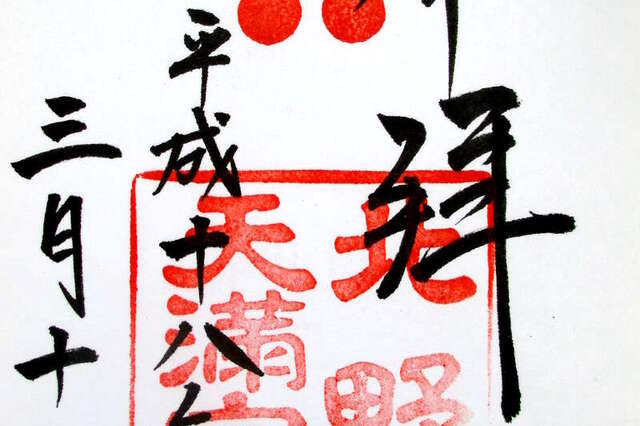 拝
北野
天満
平成十八
三月十